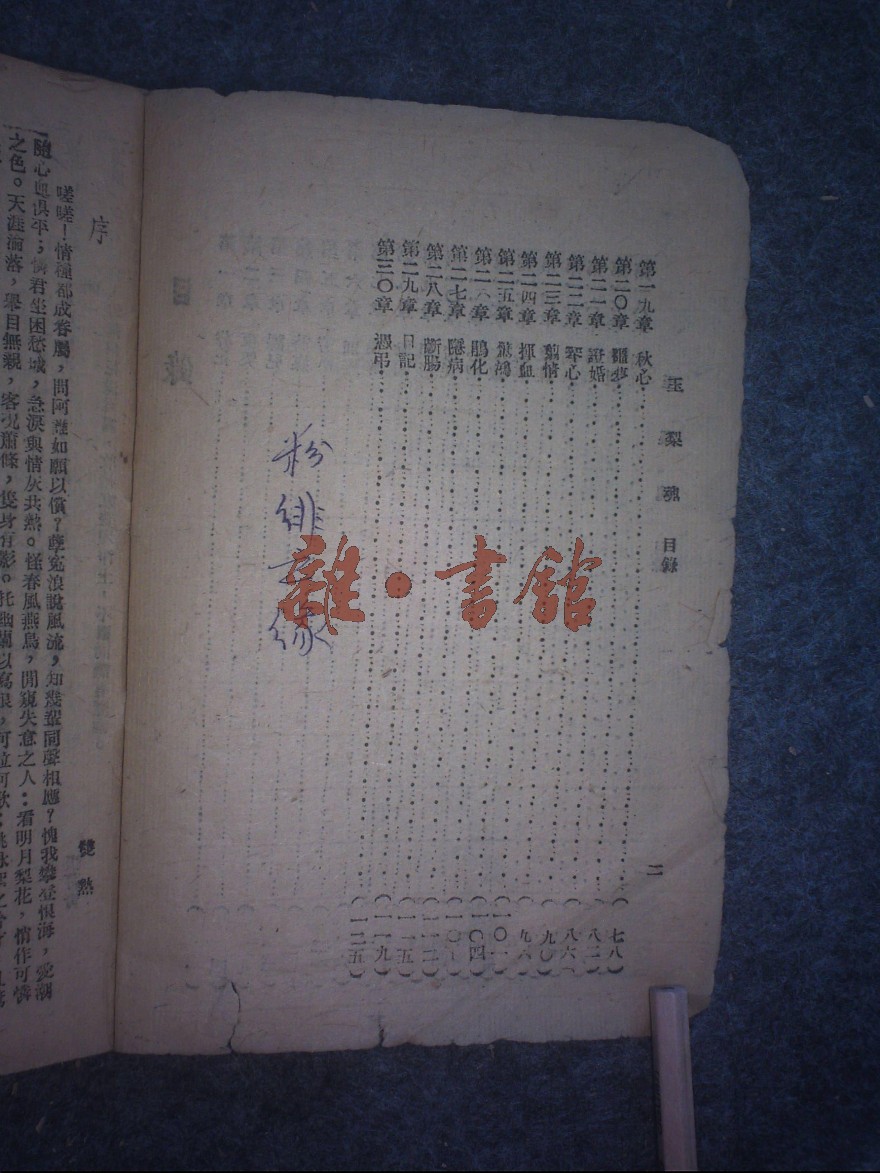 玉梨魂 目錄
二
第一九章 秋心(七八)
第二〇章 噩夢(八二)
第二一章 證婚(八六)
第二二章 琴心(九〇)
第二三章 剪情(九六)
第二四章 揮血(一〇一)
第二五章 驚鴻(一〇四)
第二六章 鵬化
第二七章 隱病(一一二)
第二八章 斷腸(一一五)
第二九章 日記(一一九)
第三〇章 憑弔(一二五)
粉緋玄緣
雜·書館
目錄
序
雙熱
嗟嗟！情種都成眷屬，問阿誰如願以償？孽冤浪說風流，知幾輩同聲相應？愧我
恨海，愛潮
隨心血俱平；憐君坐困愁城，急淚與情灰共熱。怪春風燕鳥，閒窺失意之人：看明月梨花，情作可憐
之色。天涯淪落，舉目無親，客况蕭條，隻身有影。托幽蘭以寫恨，可泣可歌；